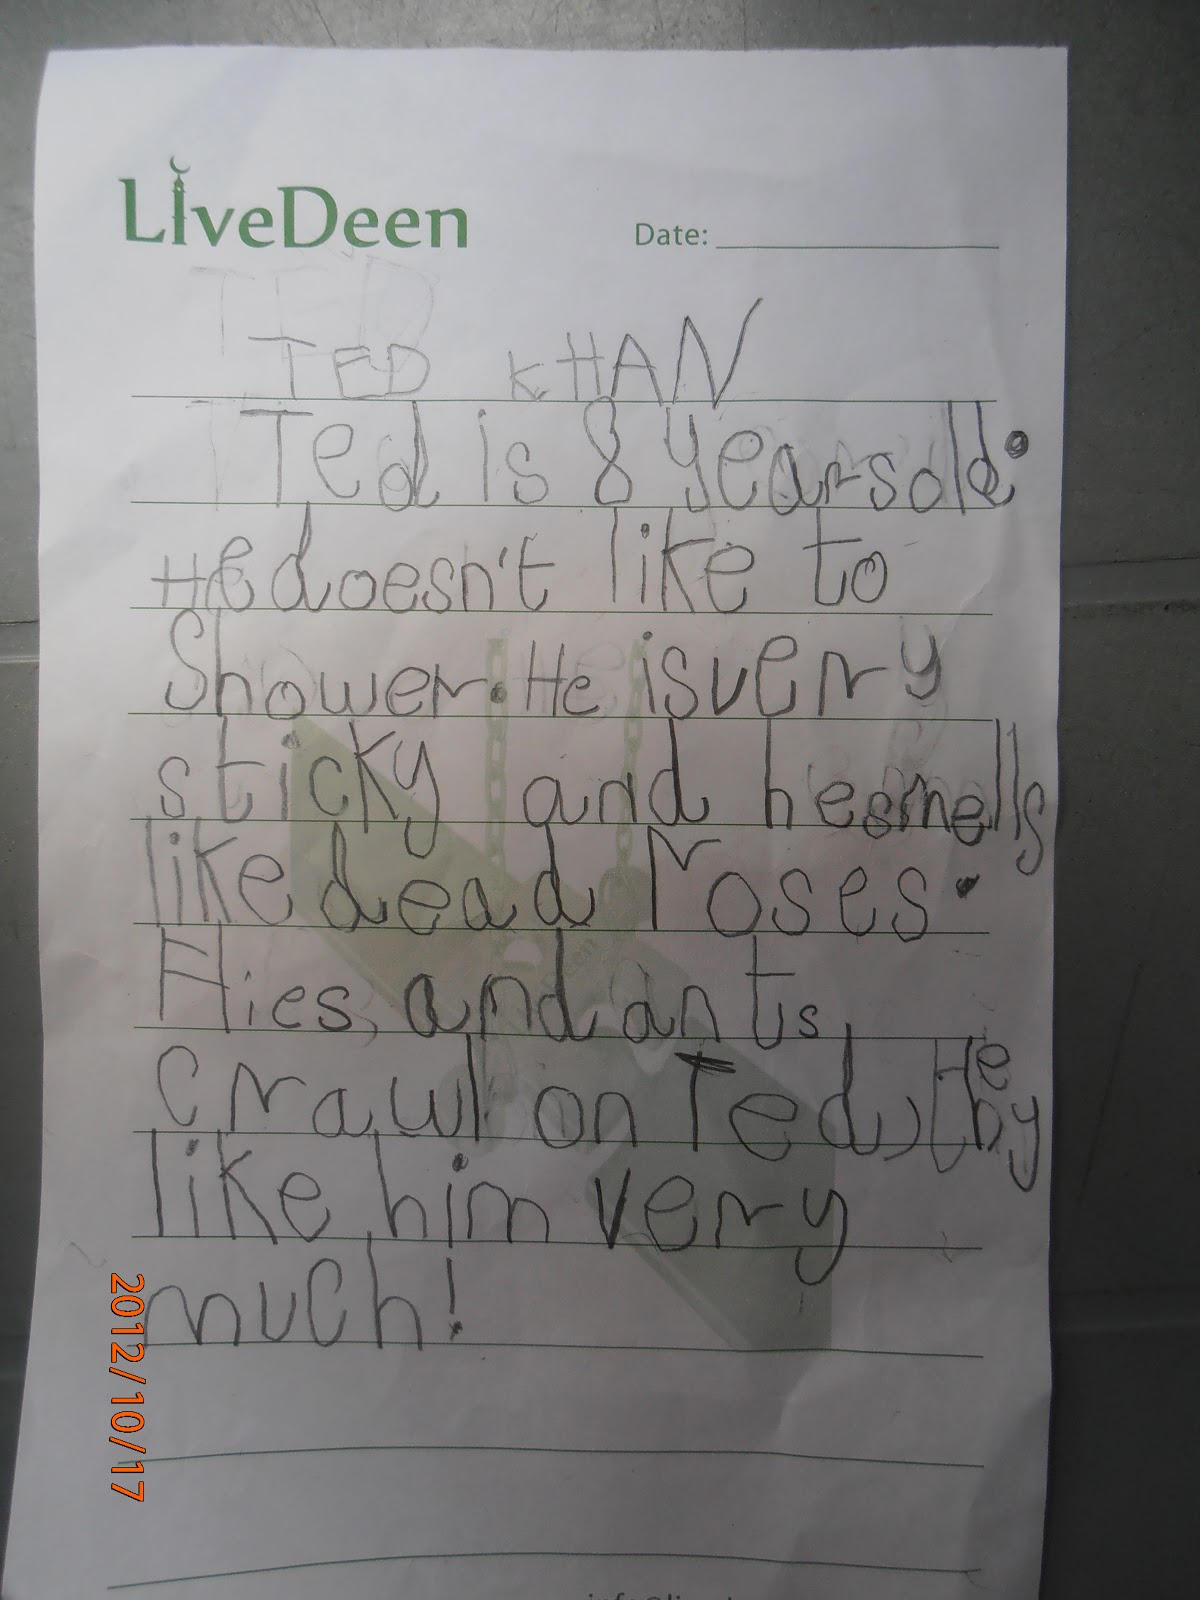 LiveDeen
Date:
TED KHAN
Ted is 8 years old.
He doesn't like to
Shower. He is very
sticky and he smells
like dead roses.
Flies, and ants
crawl on Ted, they
like him very
much!
2012/10/17